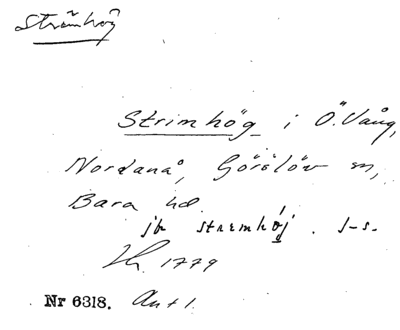 Strömhög
Strimhög i Ö. Vång,
Nordanå, Görslöv sn,
Bara hd.
jb strimhöj. 1-s.
1779
Nr 6318. Ant 1.